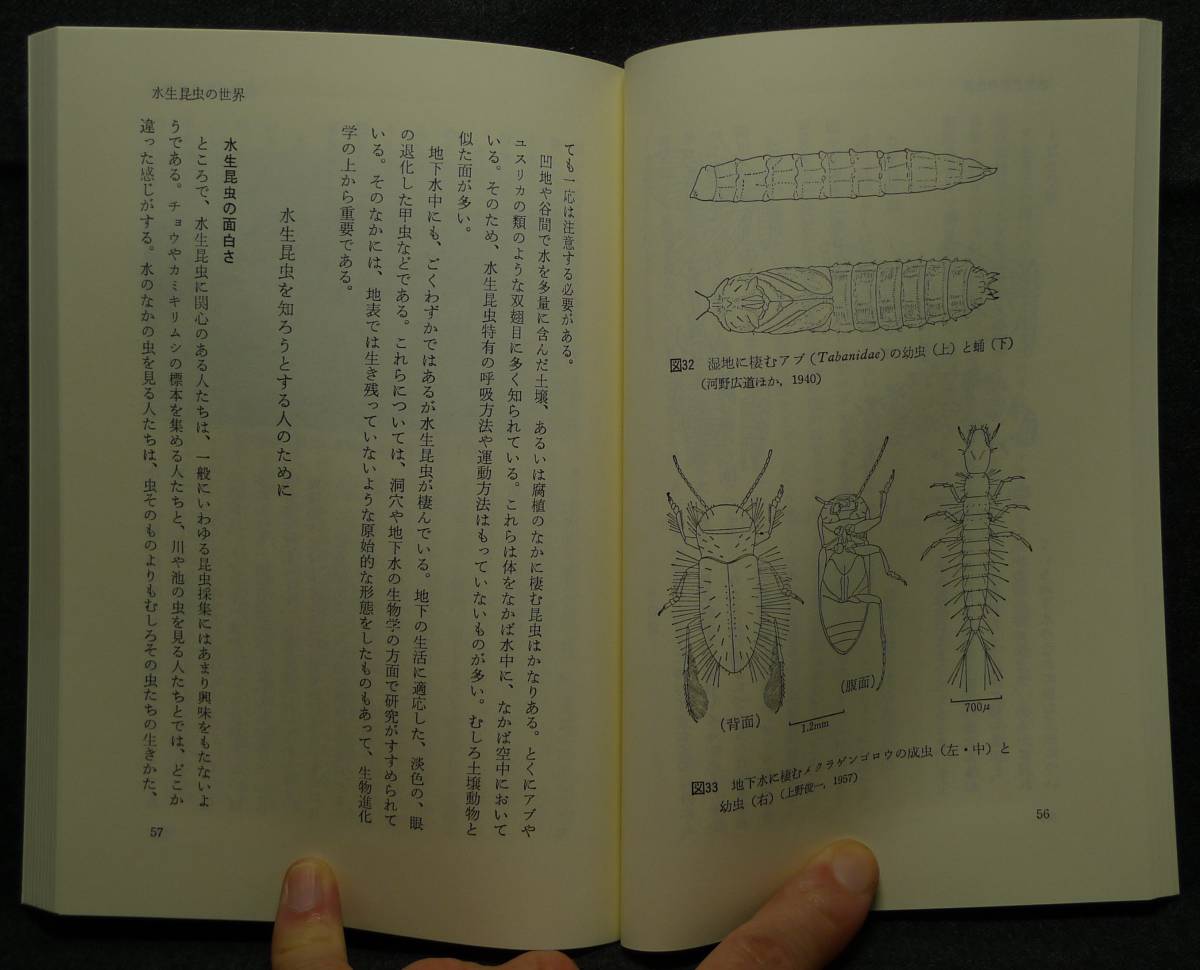 図32 湿地に棲むアブ (Tabanidae) の幼虫 (上) と蛹 (下)
(河野広道ほか, 1940)
(背面)
1.2mm
(腹面)
700μ
図33 地下水に棲むメクラゲンゴロウの成虫 (左・中) と
幼虫 (右) (上野俊一, 1957)
56
水生昆虫の世界
ても一応は注意する必要がある。
凹地や谷間で水を多量に含んだ土壌、あるいは腐植のなかに棲む昆虫はかなりある。とくにアブや
ユスリカの類のような双翅目に多く知られている。これらは体をなかば水中に、なかば空中において
いる。そのため、水生昆虫特有の呼吸方法や運動方法はもっていないものが多い。むしろ土壌動物と
似た面が多い。
地下水中にも、ごくわずかではあるが水生昆虫が棲んでいる。地下の生活に適応した、淡色の、眼
の退化した甲虫などである。これらについては、洞穴や地下水の生物学の方面で研究がすすめられて
いる。そのなかには、地表では生き残っていないような原始的な形態をしたものもあって、生物進化
学の上から重要である。
水生昆虫を知ろうとする人のために
水生昆虫の面白さ
ところで、水生昆虫に関心のある人たちは、一般にいわゆる昆虫採集にはあまり興味をもたないよ
うである。チョウやカミキリムシの標本を集める人たちと、川や池の虫を見る人たちとでは、どこか
違った感じがする。水のなかの虫を見る人たちは、虫そのものよりもむしろその虫たちの生きかた、
57